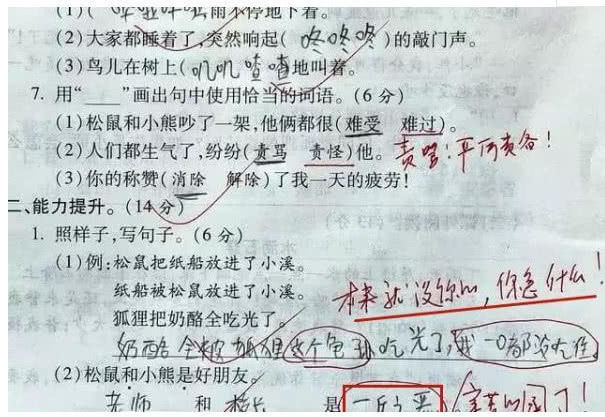 (1)(哗啦哗啦)雨不停地下着。
(2)大家都睡着了,突然响起(咚咚咚)的敲门声。
(3)鸟儿在树上(叽叽喳喳)地叫着。
7. 用“___”画出句中使用恰当的词语。(6分)
(1)松鼠和小熊吵了一架,他俩都很(难受 难过)。
(2)人们都生气了,纷纷(责骂 责怪)他。
(3)你的称赞(消除 解除)了我一天的疲劳!
二、能力提升。(14分)
1. 照样子,写句子。(6分)
(1)例:松鼠把纸船放进了小溪。
纸船被松鼠放进了小溪。
本来就没你的,你急什么!
狐狸把奶酪全吃光了。
奶酪全被狐狸这个包孙吃光了,我一口都没吃
(2)松鼠和小熊是好朋友。
老师 和 校长 是 一丘之貉